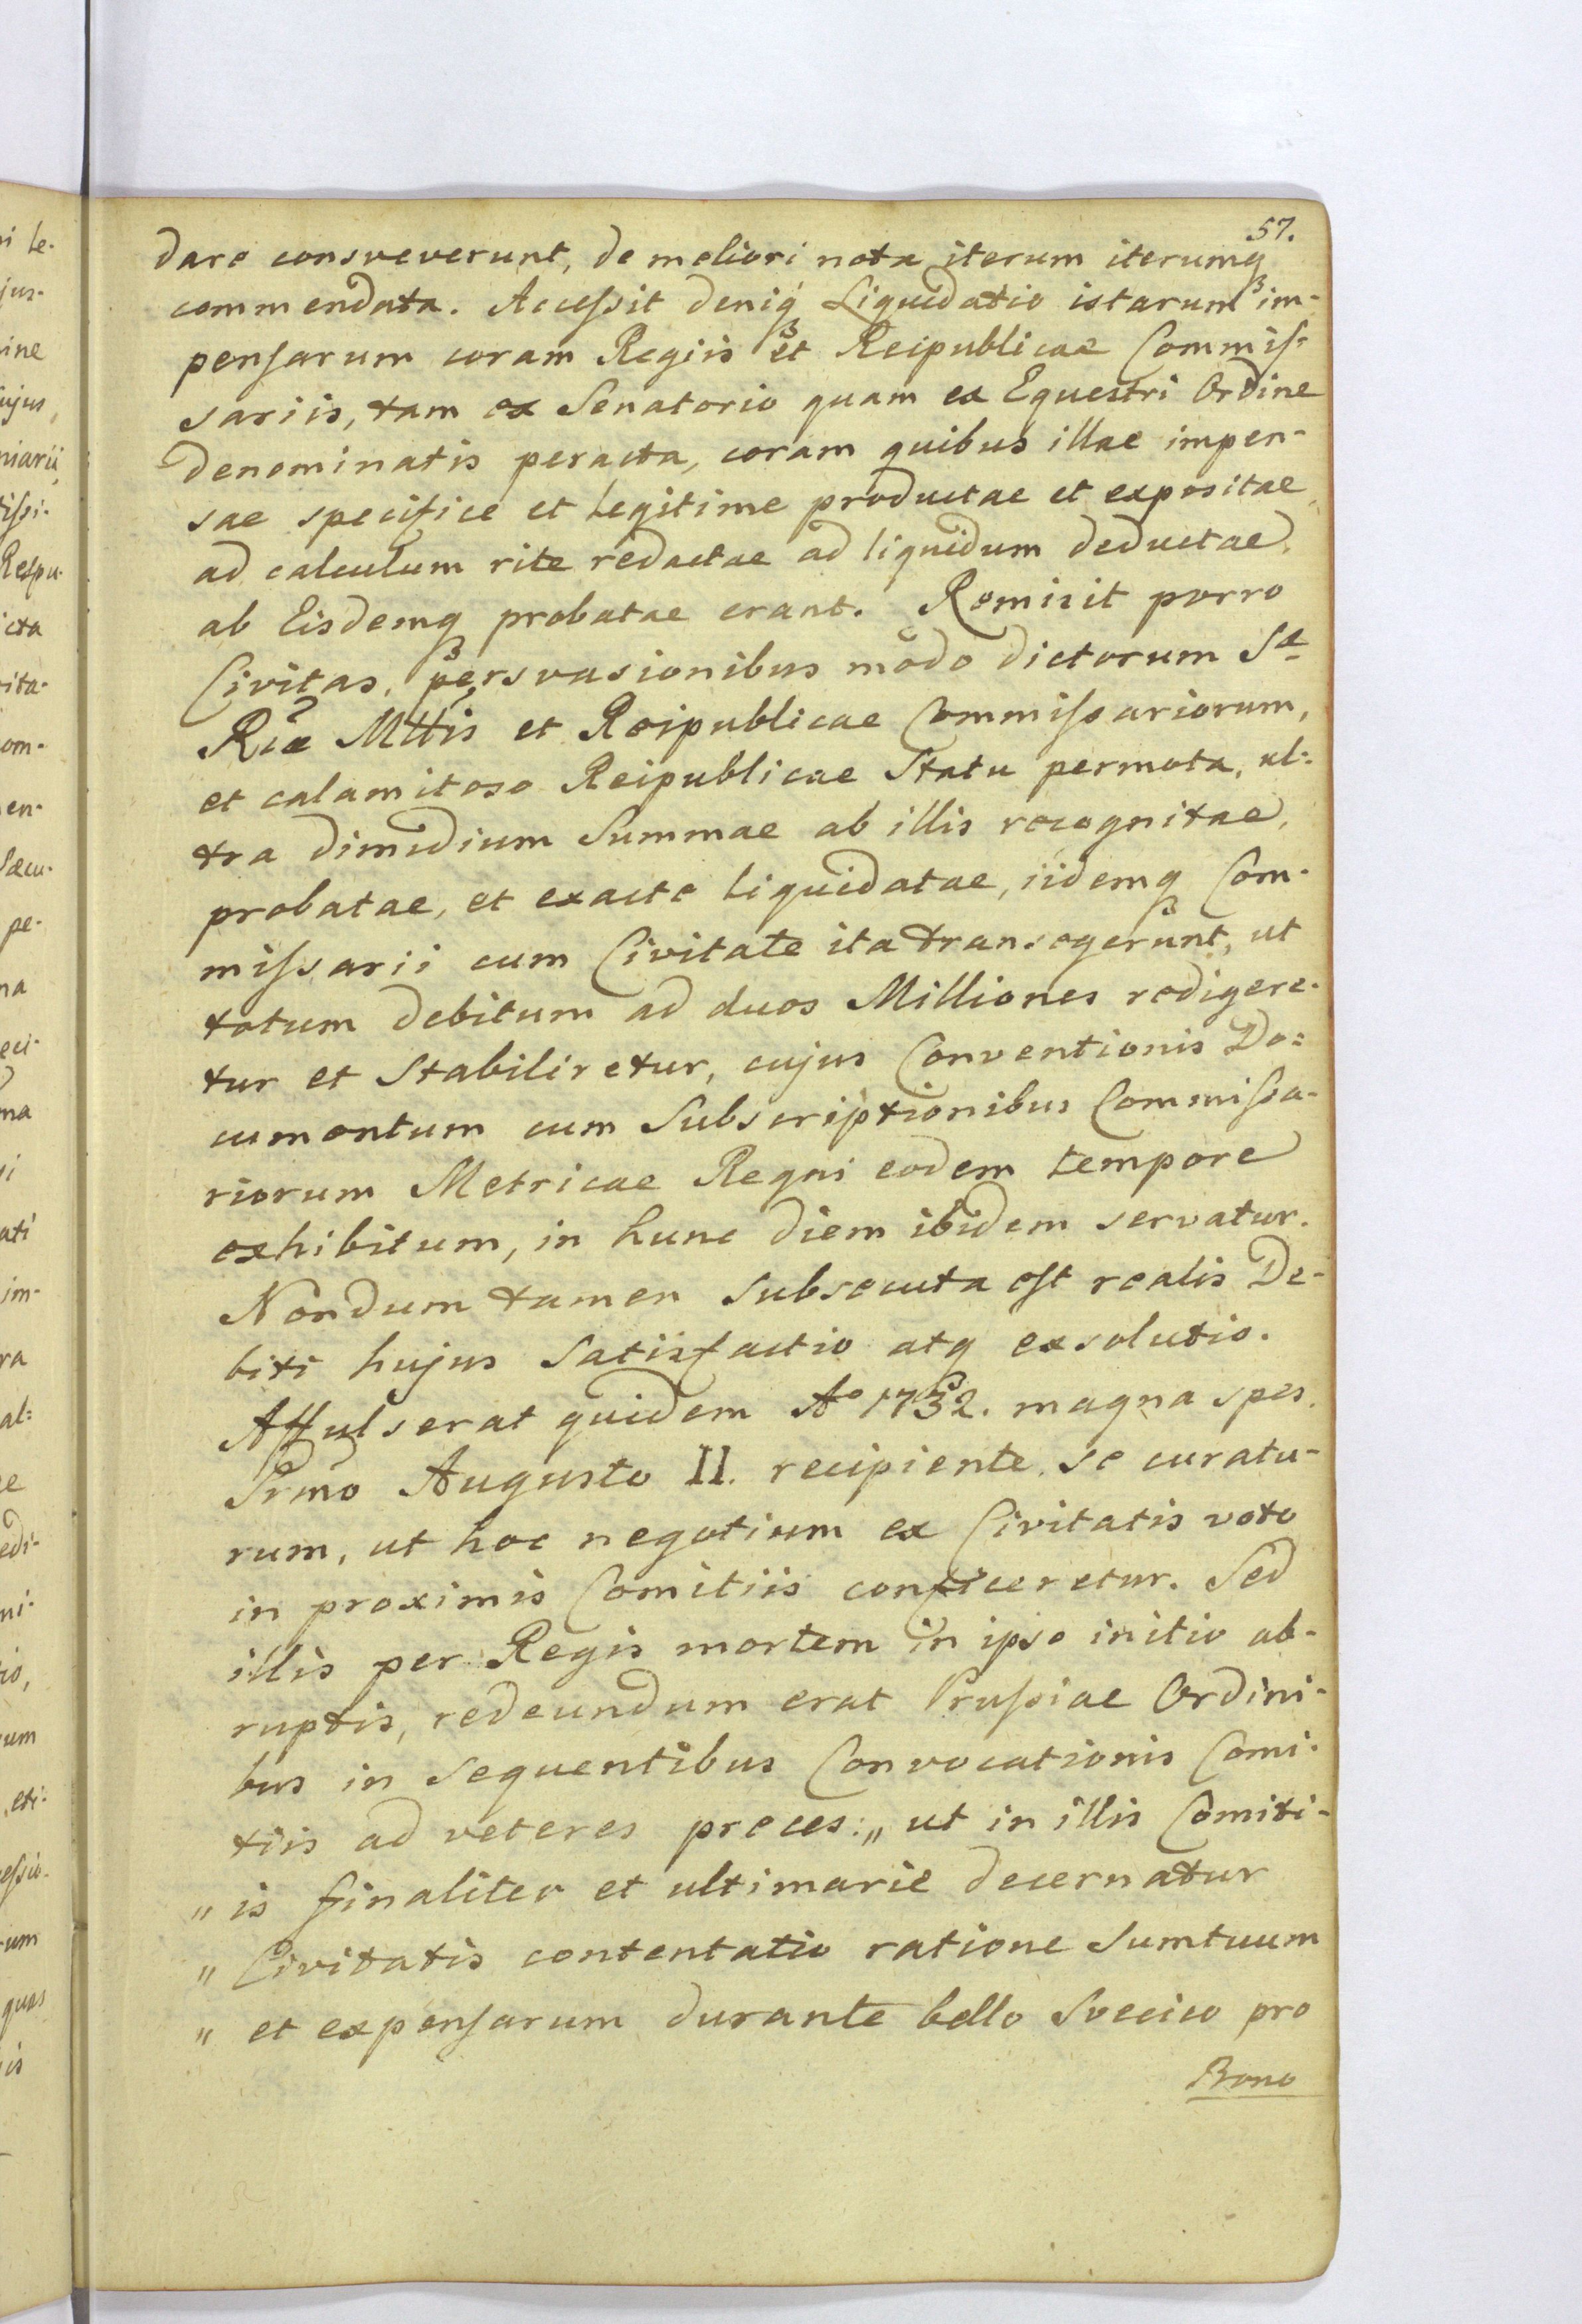 57.
dare consveverunt, de meliori nota iterum iterumq3
commendata. Accessit deniq3 Liquidatio istarum im-
pensarum coram Regiis et Reipublicae Commis-
sariis, tam ex Senatorio quam ex Equestri Ordine
denominatis peracta, coram quibus illae impen-
sae specifice et legitime productae et expositae,
ad calculum rite redactae ad liquidum deductae,
ab Eisdemq3 probatae erant. Remisit porro
Civitas, persvasionibus modo dictorum Sae
Riae Mttis et Reipublicae Commissariorum,
et calamitoso Reipublicae Statu permota, ul=
tra dimidium Summae ab illis recognitae,
probatae, et exacte liquidatae, iidemq3 Com-
missarii cum Civitate ita transegerunt, ut
totum debitum ad duos Milliones redigere-
tur et Stabiliretur, cujus Conventionis Do=
cumentum cum Subscriptionibus Commissa-
riorum Metricae Regni eodem tempore
exhibitum, in hunc diem ibidem servatur.
Nondum tamen subsecuta est realis De-
biti hujus Satisfactio atq3 exsolutio.
Affulserat quidem Ao 1732. magna spes,
Srmo Augusto II. recipiente, se curatu-
rum, ut hoc negotium ex Civitatis voto
in proximis Comitiis conficeretur. Sed
illis per Regis mortem in ipso initio ab-
ruptis, redeundum erat Prussiae Ordini-
bus in sequentibus Convocationis Comi-
tiis ad veteres preces: „ ut in illis Comiti-
„ is finaliter et ultimarie decernatur
„ Civitatis contentatio ratione Sumtuum
„ et expensarum durante bello Svecico pro
Bono
ni le-
jus-
ine
ujus,
niarii,
tissi-
Respu-
icta
rita-
om-
en-
Saecu-
pe-
na
eci-
ma
ati
im-
ra
al=
edi-
ni-
io,
um
eti-
essio-
rum
quas
is